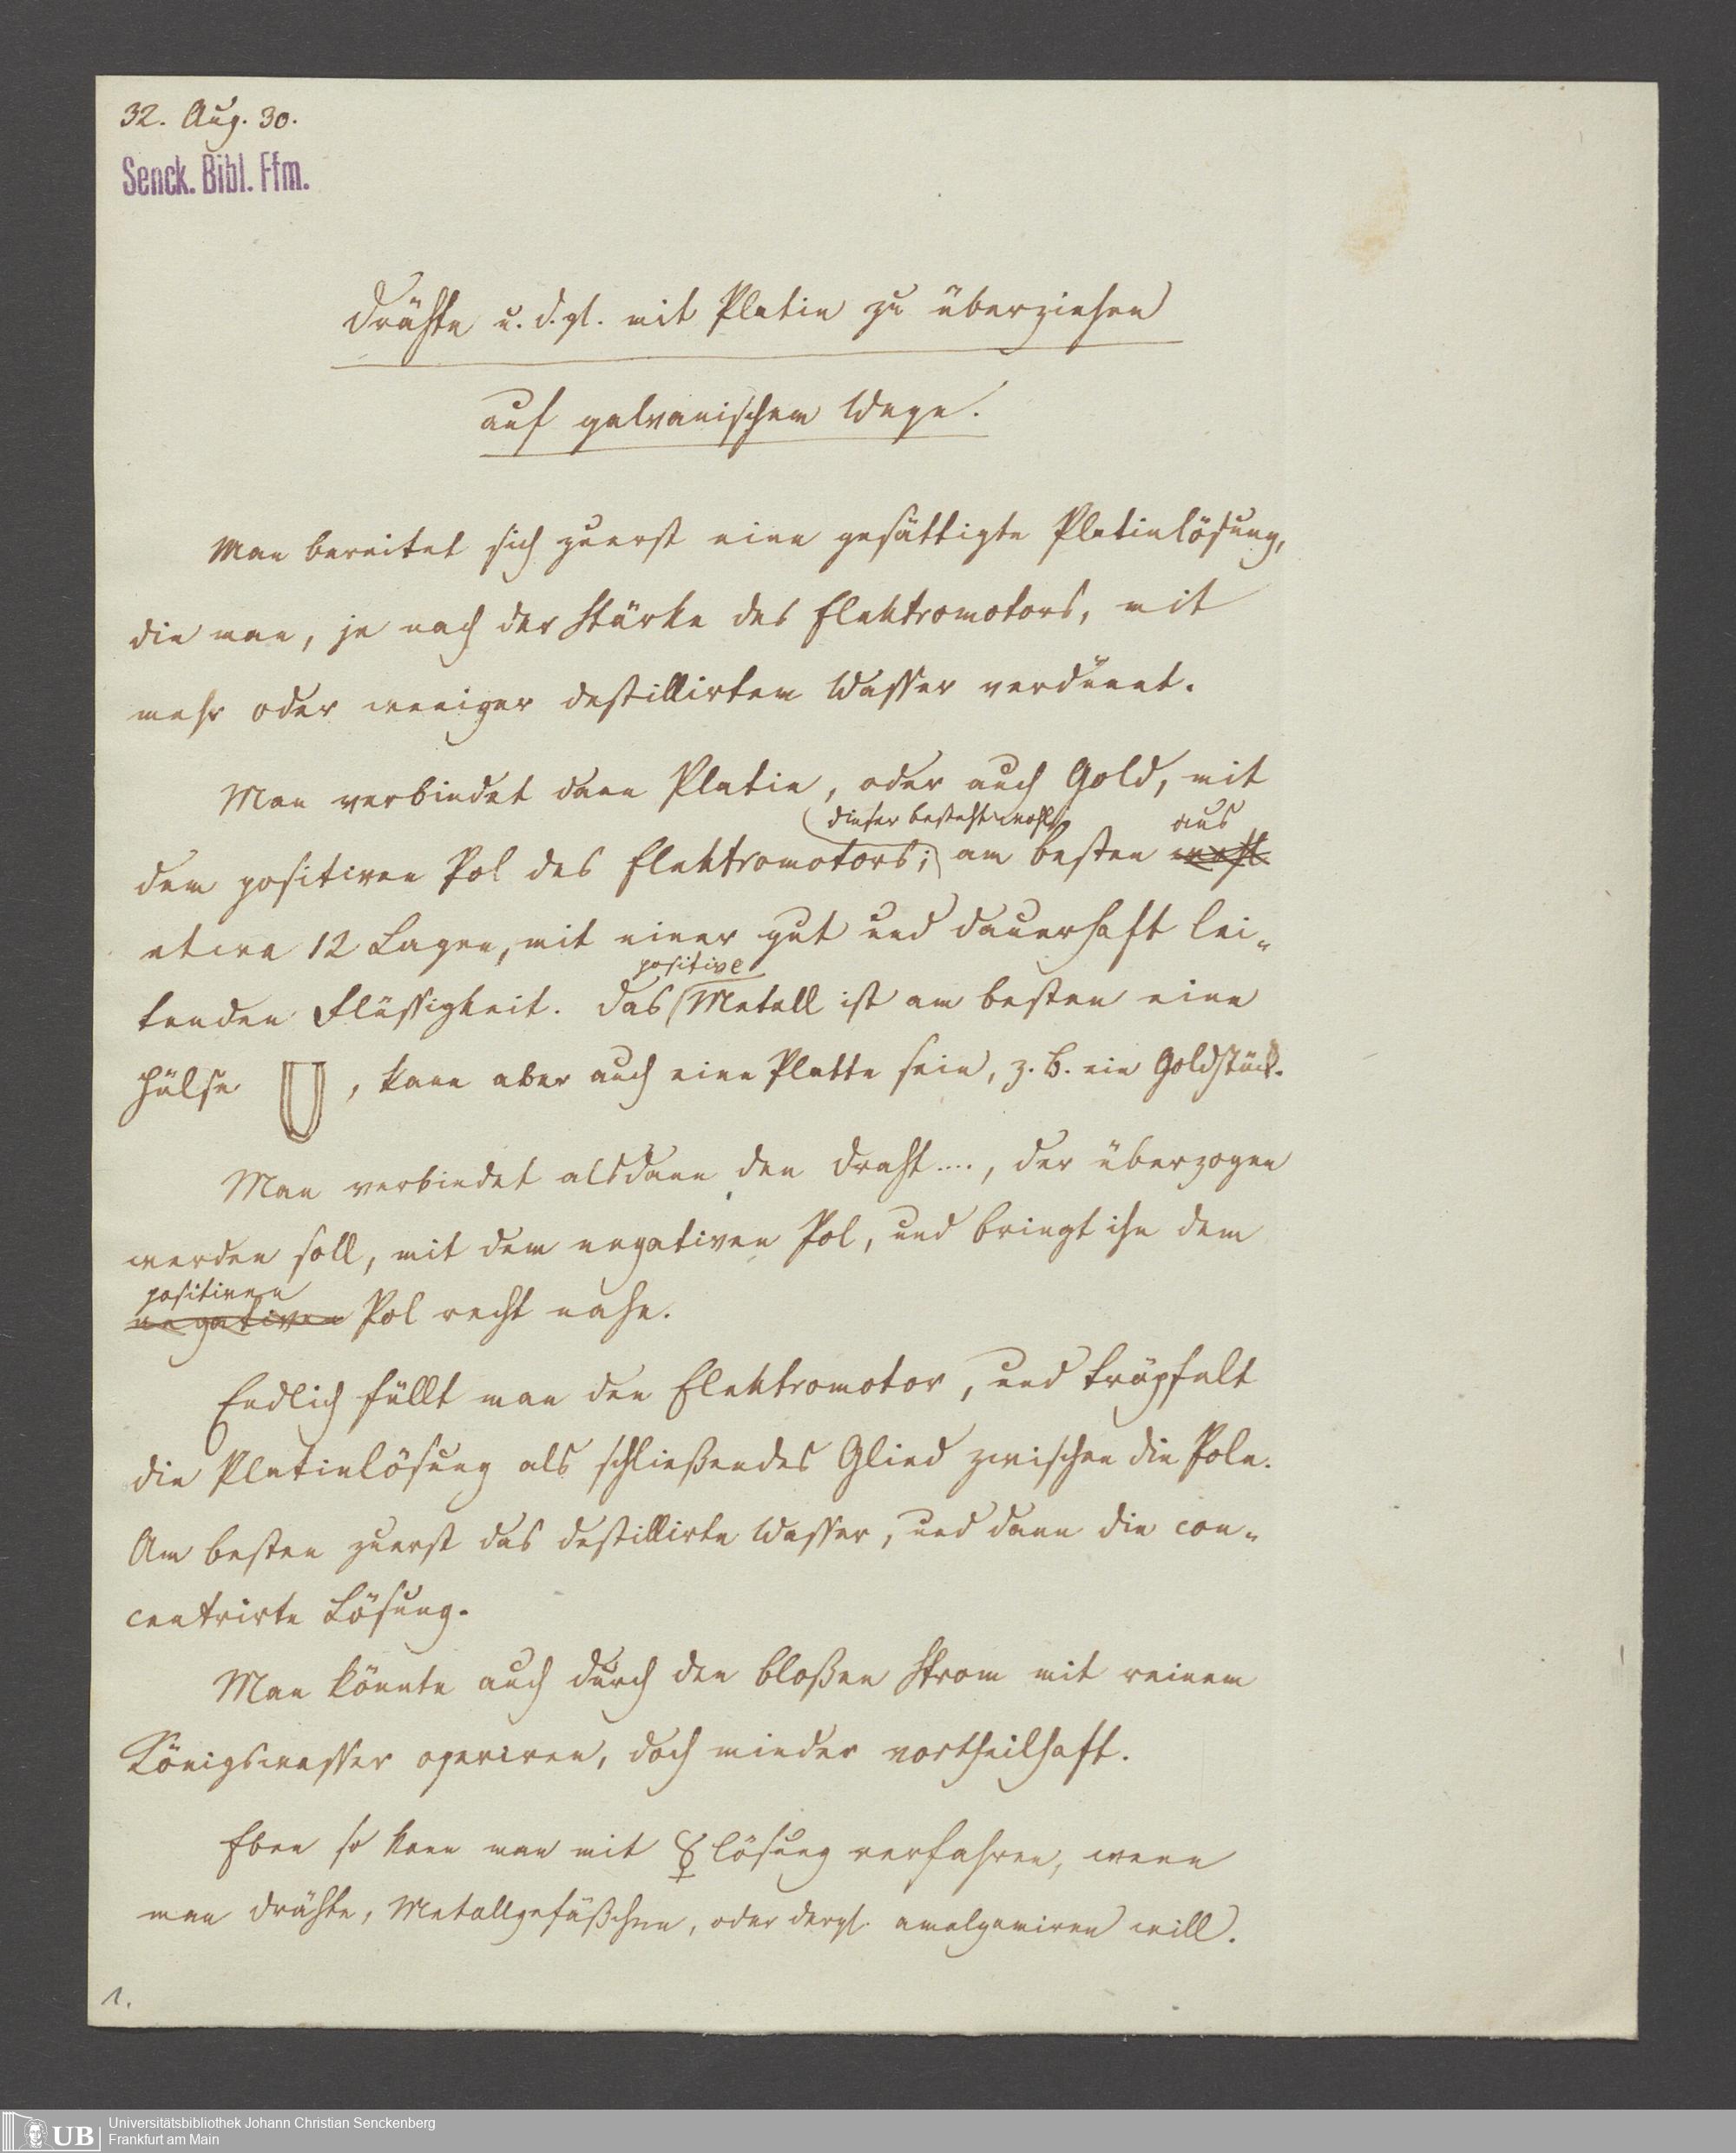 32. Aug. 30.
Senck. Bibl. Ffm.
Drähte u. d. gl. mit Platin zu überziehen
auf galvanischem Wege.
Man bereitet sich zuerst eine gesättigte Platinlösung,
die man, je nach der Stärke des Elektromotors, mit
mehr oder weniger destillirtem Wasser verdünnt.
Man verbindet dann Platin, oder auch Gold, mit
dieser besteht wohl aus
dem positiven Pol des Elektromotors; am besten wohl
etwa 12 Lagen, mit einer gut und dauerhaft lei-
positive
tenden Flüssigkeit. Das Metall ist am besten eine
Hülse , kann aber auch eine Platte sein, z. B. ein Goldstück.
Man verbindet alsdann den Draht...., der überzogen
werden soll, mit dem negativen Pol, und bringt ihn dem
positiven
negativen Pol recht nahe.
Endlich füllt man den Elektromotor, und tröpfelt
die Platinlösung als schließendes Glied zwischen die Pole.
Am besten zuerst das destillirte Wasser, und dann die con-
centrirte Lösung.
Man könnte auch durch den bloßen Strom mit reinem
Königswasser operiren, doch minder vortheilhaft.
Eben so kann man mit ☿lösung verfahren, wenn
man Drähte, Metallgefäßchen, oder dergl. amalgamiren will.
1.
UB
Universitätsbibliothek Johann Christian Senckenberg
Frankfurt am Main